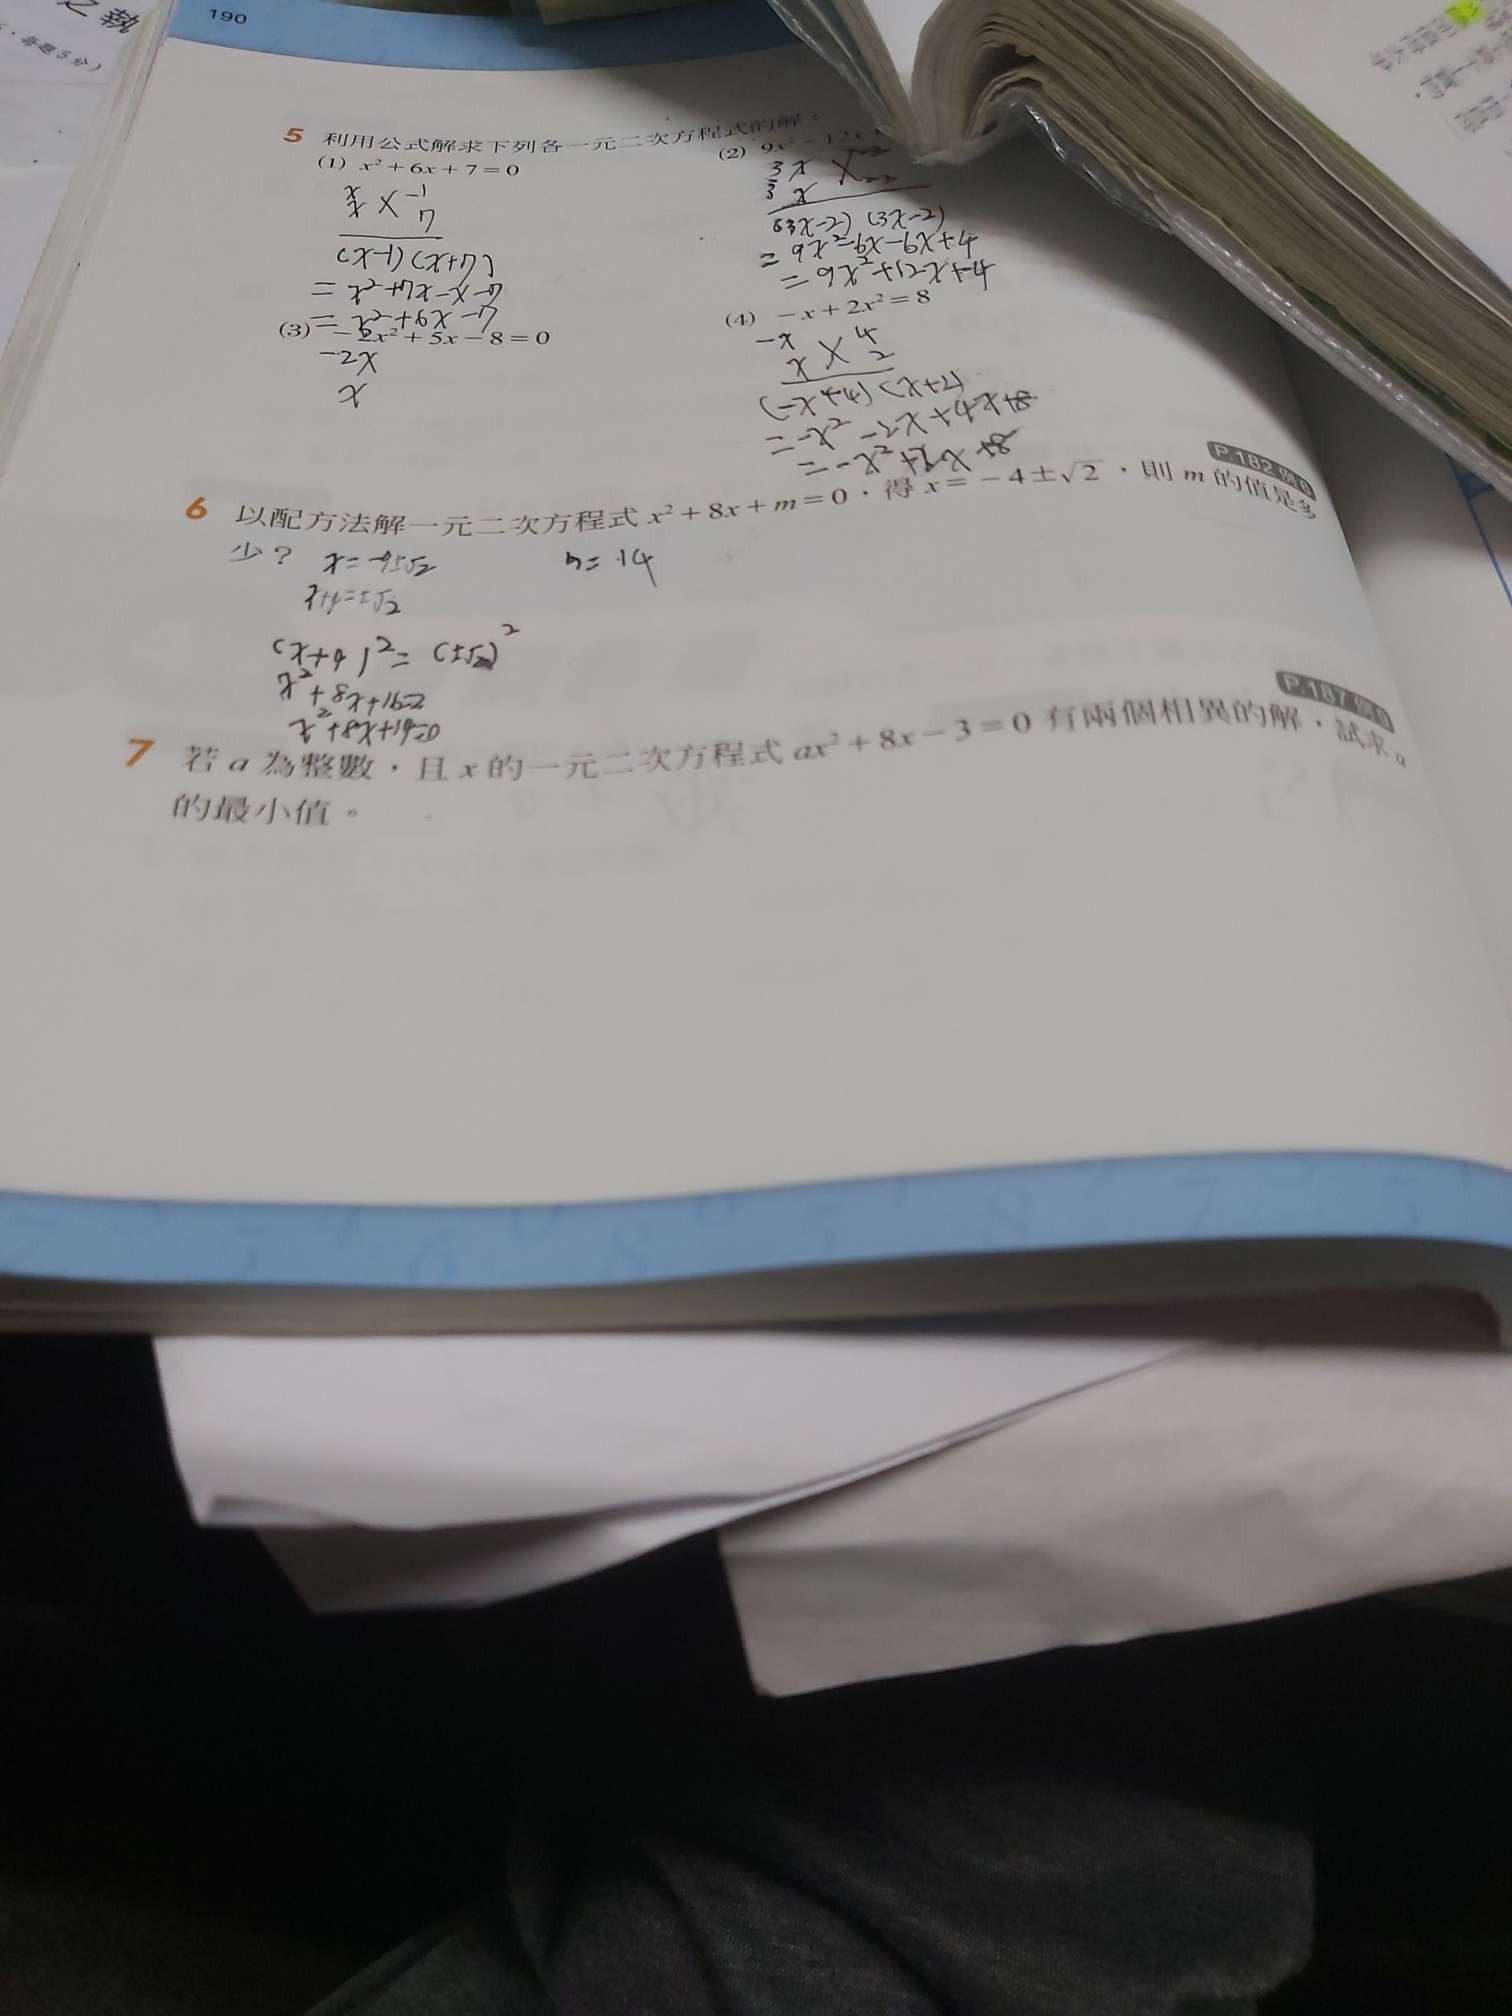 190
5 利用公式解求下列各一元二次方程式的解：
(1) x² + 6x + 7 = 0
(2) 9x² − 12x +
x -1
x 7
(x-1)(x+7)
= x²+7x-x-7
= x²+6x-7
3x
3x
(3x-2)(3x-2)
= 9x²-6x-6x+4
= 9x²+12x+4
(3) −2x² + 5x − 8 = 0
-2x
x
(4) −x + 2x² = 8
-x 4
x 2
(-x+4)(x+2)
= -x²-2x+4x+8
= -x²+2x+8
P.182 例6
6 以配方法解一元二次方程式 x² + 8x + m = 0，得 x = −4 ± √2，則 m 的值是多
少？ x = -4±√2
m = 14
x+4=±√2
(x+4)² = (±√2)²
x²+8x+16=2
x²+8x+14=0
P.187
7 若 a 為整數，且 x 的一元二次方程式 ax² + 8x − 3 = 0 有兩個相異的解，試求 a
的最小值。